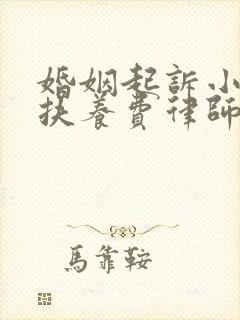 婚姻起訴小
扶養費律師
馬靠鞍